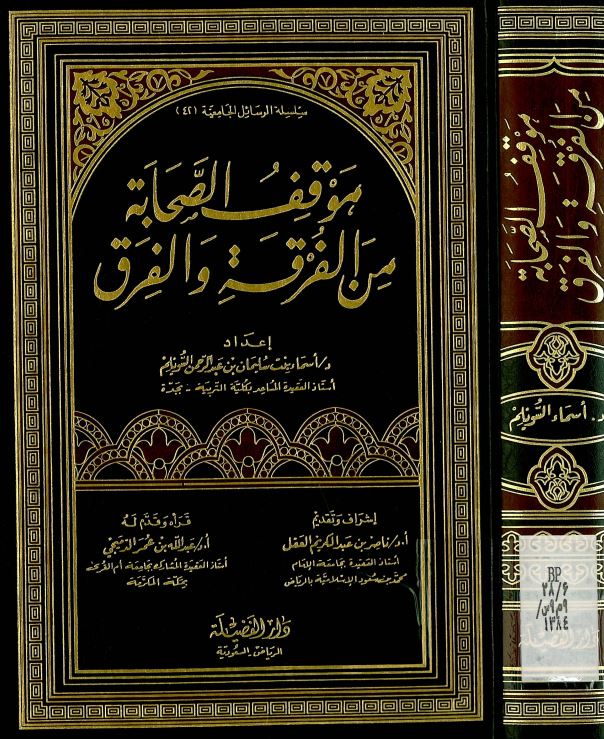 سلسلة الرسائل الجامعية (٤٢)
مَوْقِفُ الصَّحَابَة
مِنَ الفُرْقَةِ وَالفِرَق
إعداد
د/أسماء بنت سليمان بن عبد الرحمن السويلم
أستاذ العقيدة المساعد بكلية التربية - بجدة
إشراف وتقديم
أ.د/ناصر بن عبد الكريم العقل
أستاذ العقيدة بجامعة الإمام
محمد بن سعود الإسلامية بالرياض
قرأه وقدم له
أ.د/عبد الله بن عمر الدميجي
أستاذ العقيدة المشارك بجامعة أم القرى
بمكة المكرمة
دار الفضيلة
الرياض - السعودية
مَوْقِفُ الصَّحَابَة
مِنَ الفُرْقَةِ وَالفِرَق
د. أسماء السويلم
BP
٢٨/۶
٩م٩س/
١٣٨٤
دار الفضيلة